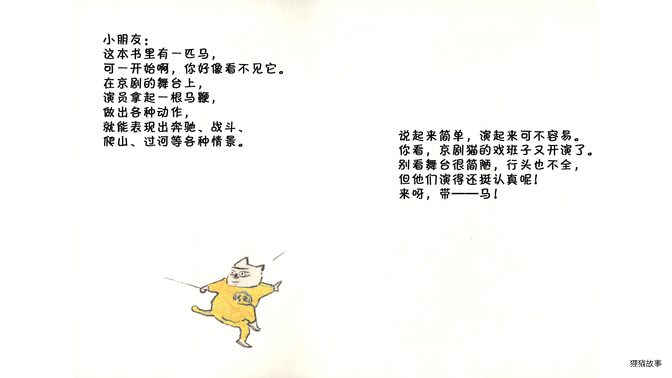 小朋友：
这本书里有一匹马，
可一开始啊，你好像看不见它。
在京剧的舞台上，
演员拿起一根马鞭，
做出各种动作，
就能表现出奔驰、战斗、
爬山、过河等各种情景。
说起来简单，演起来可不容易。
你看，京剧猫的戏班子又开演了。
别看舞台很简陋，行头也不全，
但他们演得还挺认真呢！
来呀，带——马！
狸猫故事